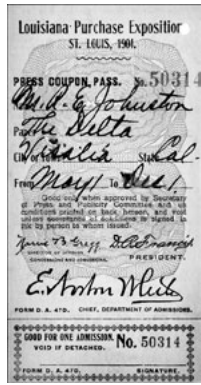 Louisiana Purchase Exposition
ST. LOUIS, 1904.
PRESS COUPON PASS. No. 50314
M. A. E. Johnston
Paper The Delta
City or Town Visalia State Cal.
From May 1 To Dec. 1
Good only when approved by Secretary
of Press and Publicity Committee and on
conditions printed on back hereof, and void
unless acceptance of conditions is signed in
ink by person to whom issued.
D. R. Francis
PRESIDENT.
FORM D. A. 47D. CHIEF, DEPARTMENT OF ADMISSIONS.
GOOD FOR ONE ADMISSION. No. 50314
VOID IF DETACHED.
FORM D. A. 47D. SIGNATURE.